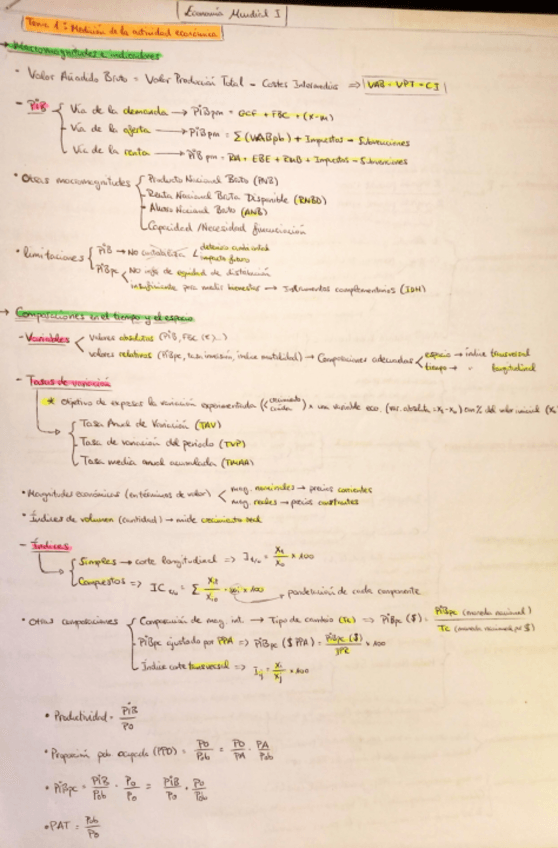 Economía Mundial I
Tema 1: Medición de la actividad económica
→ Macromagnitudes e indicadores
• Valor Añadido Bruto = Valor Producción Total - Costes Intermedios ⇒ VAB = VPT - CI
- PIB
Vía de la demanda → PIBpm = GCF + FBC + (X-M)
Vía de la oferta → PIBpm = Σ(VABpb) + Impuestos - Subvenciones
Vía de la renta → PIBpm = RA + EBE + RMB + Impuestos - Subvenciones
• Otras macromagnitudes
Producto Nacional Bruto (PNB)
Renta Nacional Bruta Disponible (RNBD)
Ahorro Nacional Bruto (ANB)
Capacidad/Necesidad financiación
• Limitaciones
PIB → No contabiliza
deterioro ambiental
impacto futuro
PIBpc
No info de equidad de distribución
insuficiente para medir bienestar → Instrumentos complementarios (IDH)
→ Comparaciones en el tiempo y el espacio
- Variables
valores absolutos (PIB, FBC (€)...)
valores relativos (PIBpc, tasa inversión, índice mortalidad) → Comparaciones adecuadas
espacio → índice transversal
tiempo → " longitudinal
- Tasas de variación
* Objetivo de expresar la variación experimentada (crecimiento/caída) x una variable eco. (var. absoluta = X₁ - X₀) en % del valor inicial (X₀
Tasa Anual de Variación (TAV)
Tasa de variación del período (TVP)
Tasa media anual acumulada (TMAA)
• Magnitudes económicas (en términos de valor)
mag. nominales → precios corrientes
mag. reales → precios constantes
• Índices de volumen (cantidad) → mide crecimiento real
- Índices
Simples → corte longitudinal ⇒ I t/0 = Xt/X0 × 100
Compuestos ⇒ IC t/0 = Σ Xit/Xi0 · wi × 100
ponderación de cada componente
• Otras comparaciones
Comparación de mag. int. → Tipo de cambio (Tc) ⇒ PIBpc ($) = PIBpc (moneda nacional) / Tc (moneda nacional por $)
PIBpc ajustado por PPA ⇒ PIBpc ($ PPA) = PIBpc ($) / IPR × 100
Índice corte transversal ⇒ I ij = Xi/Xj × 100
• Productividad = PIB/PO
• Proporción pob ocupada (PPO) = PO/Pob = PO/PA · PA/Pob
• PIBpc = PIB/Pob · PO/PO = PIB/PO · PO/Pob
• PAT = Pob/PO